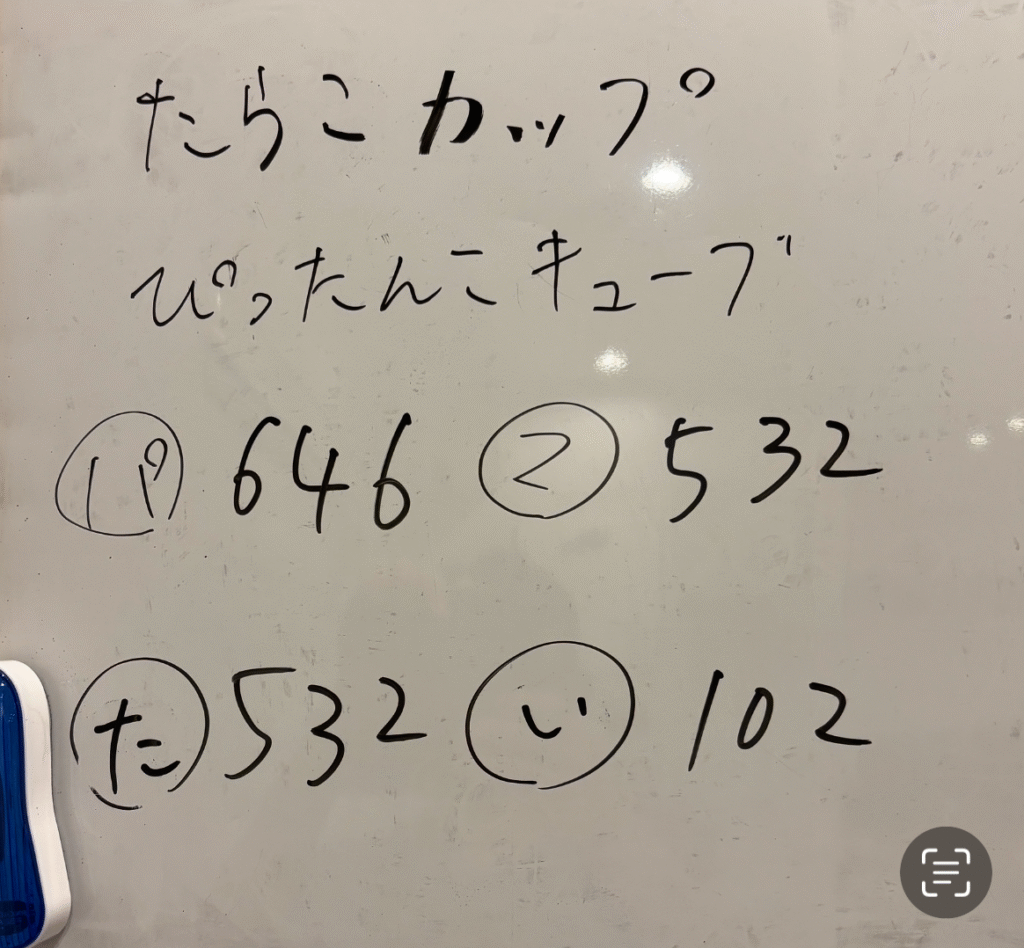 たらこカップ
ぴったんこキューブ
パ 646 こ 532
た 532 い 102